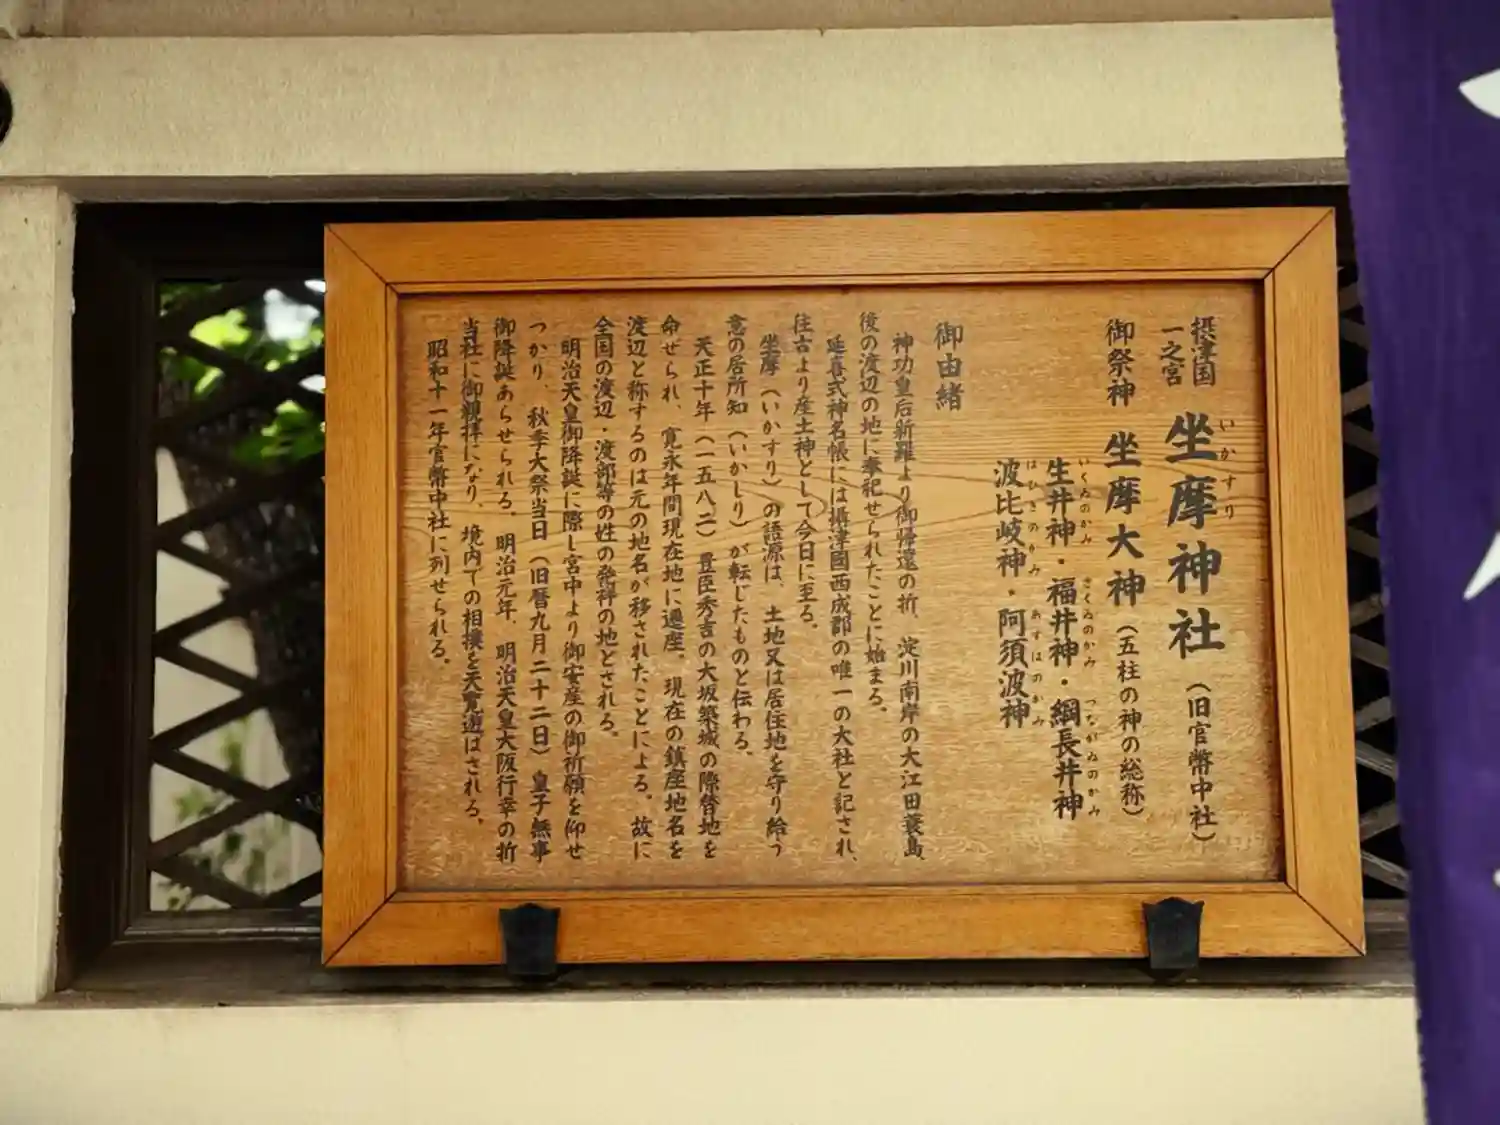 摂津国
一之宮
坐摩神社（旧官幣中社）
いかすり
御祭神 坐摩大神（五柱の神の総称）
生井神・福井神・綱長井神
いくゐのかみ さくゐのかみ つながゐのかみ
波比岐神・阿須波神
はひきのかみ あすはのかみ
御由緒
神功皇后新羅より御帰還の折、淀川南岸の大江田蓑島、
後の渡辺の地に奉祀せられたことに始まる。
延喜式神名帳には攝津國西成郡の唯一の大社と記され、
往古より産土神として今日に至る。
坐摩（いかすり）の語源は、土地又は居住地を守り給う
意の居所知（いかしり）が転じたものと伝わる。
天正十年（一五八二）豊臣秀吉の大坂築城の際替地を
命ぜられ、寛永年間現在地に遷座。現在の鎮座地名を
渡辺と称するのは元の地名が移されたことによる。故に
全国の渡辺・渡部等の姓の発祥の地とされる。
明治天皇御降誕に際し宮中より御安産の御祈願を仰せ
つかり、秋季大祭当日（旧暦九月二十二日）皇子無事
御降誕あらせられる。明治元年、明治天皇大阪行幸の折
当社に御親拝になり、境内での相撲を天覧遊ばされる。
昭和十一年官幣中社に列せられる。